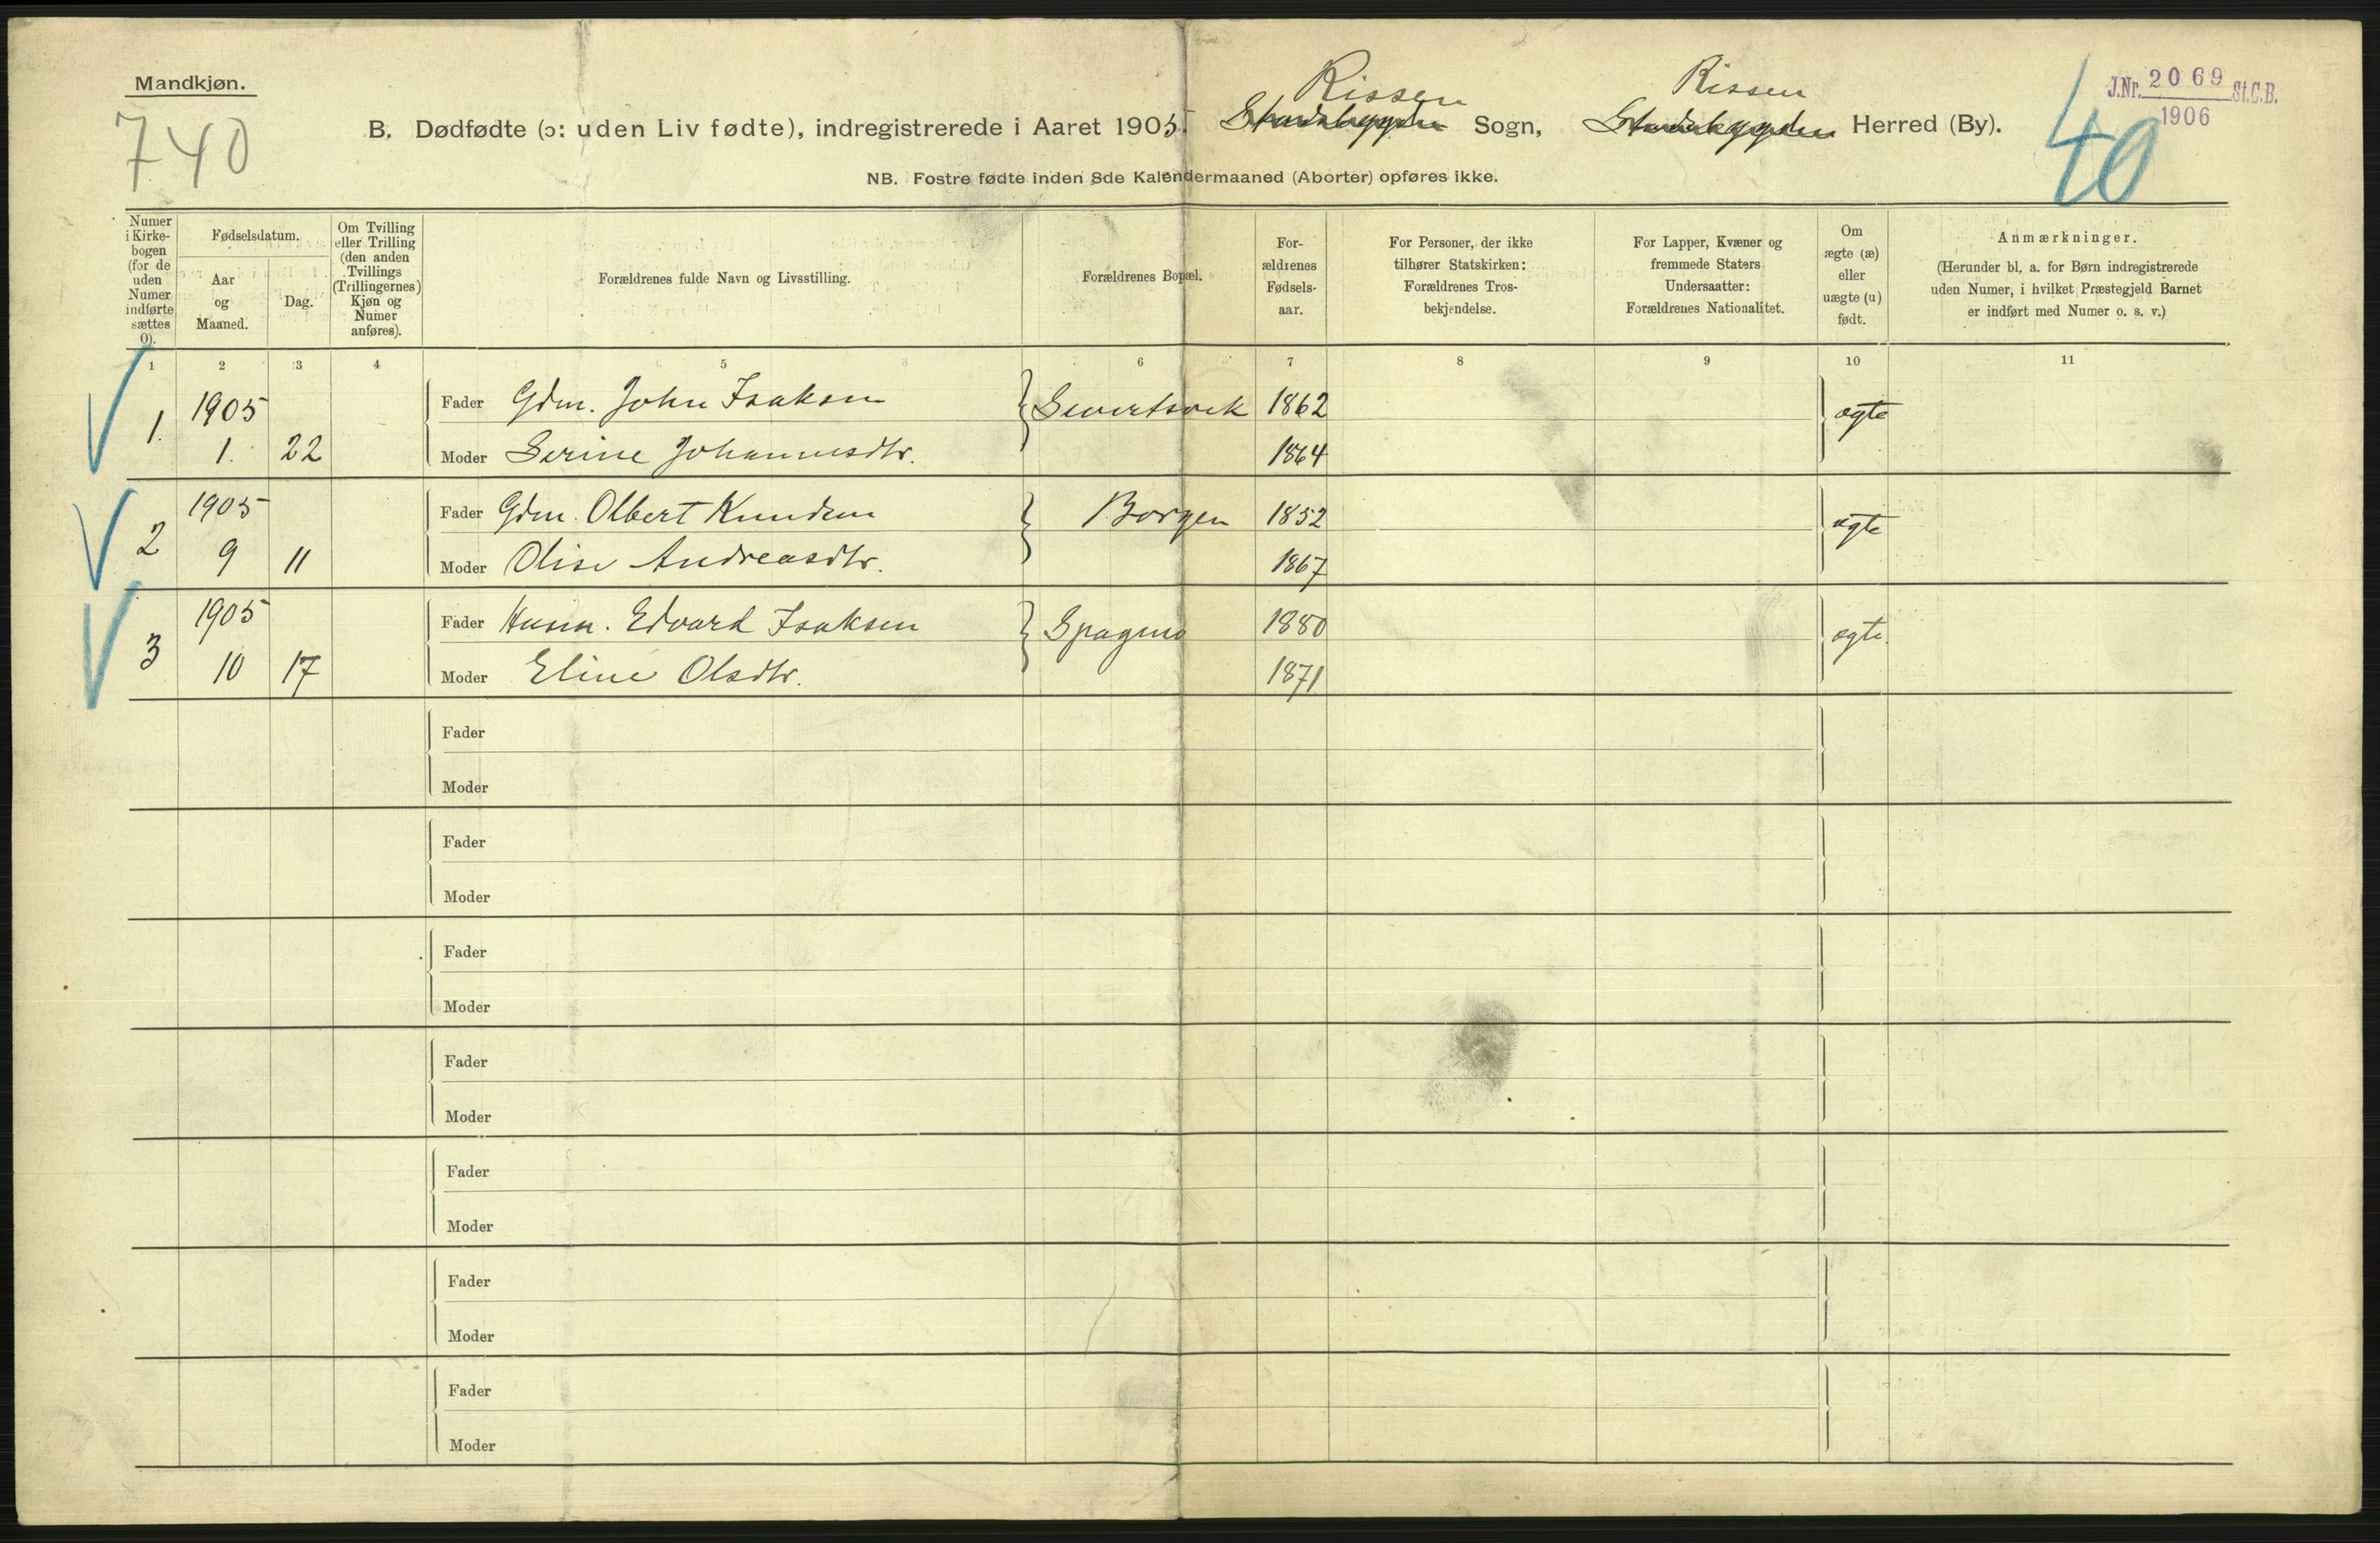 Mandkjøn.
740
Rissen Rissen
B. Dødfødte (ɔ: uden Liv fødte), indregistrerede i Aaret 1905. Stadsbygden Sogn, Stadsbygden Herred (By).
J.Nr. 2069 St.C.B.
1906
40
NB. Fostre fødte inden 8de Kalendermaaned (Aborter) opføres ikke.
Numer i Kirke-bogen (for de uden Numer indførte sættes 0).
Fødselsdatum.
Aar og Maaned.
Dag.
Om Tvilling eller Trilling (den anden Tvillings (Trillingernes) Kjøn og Numer anføres).
Forældrenes fulde Navn og Livsstilling.
Forældrenes Bopæl.
For-ældrenes Fødsels-aar.
For Personer, der ikke tilhører Statskirken: Forældrenes Tros-bekjendelse.
For Lapper, Kvæner og fremmede Staters Undersaatter: Forældrenes Nationalitet.
Om ægte (æ) eller uægte (u) født.
Anmærkninger.
(Herunder bl. a. for Børn indregistrerede uden Numer, i hvilket Præstegjeld Barnet er indført med Numer o. s. v.)
1 2 3 4 5 6 7 8 9 10 11
1. 1905 Fader Gdm. John Isaksen Sivertsvik 1862 ægte
1. 22 Moder Serine Johannesdtr. 1864
2 1905 Fader Gdm. Olbert Knudsen Borgen 1852 ægte
9 11 Moder Olise Andreasdtr. 1867
3 1905 Fader Husm. Edvard Isaksen Spagmo 1880 ægte
10 17 Moder Eline Olsdtr. 1871
Fader
Moder
Fader
Moder
Fader
Moder
Fader
Moder
Fader
Moder
Fader
Moder
Fader
Moder